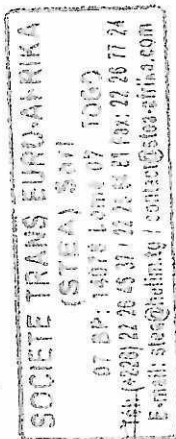 SOCIETE TRANS EURO-AFRIKA
(STEA) Sarl
07 BP: 14076 Lomé 07 TOGO
Tél: (+228) 22 26 45 37 / 22 26 21 fax: 22 26 77 24
E-mail: stea@helim.tg / contact@stea-afrika.com